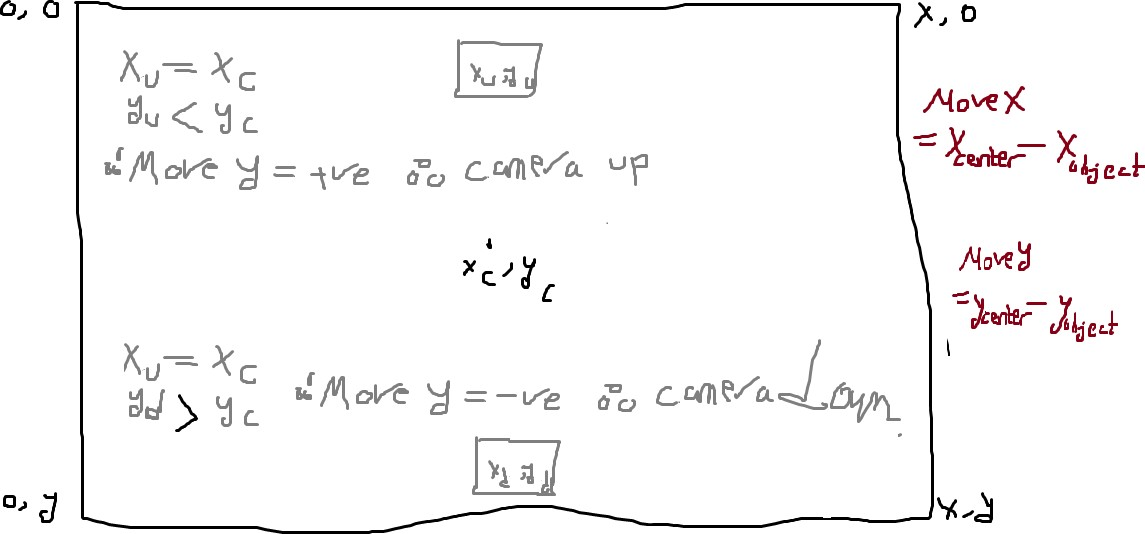 0, 0
x, 0
Xu = xc
yu < yc
xu, yu
Move y = +ve camera up
Move X
= Xcenter - Xobject
xc, yc
Move y
= ycenter - yobject
Xu = xc
yd > yc
Move y = -ve camera Down.
xd, yd
0, y
x, y